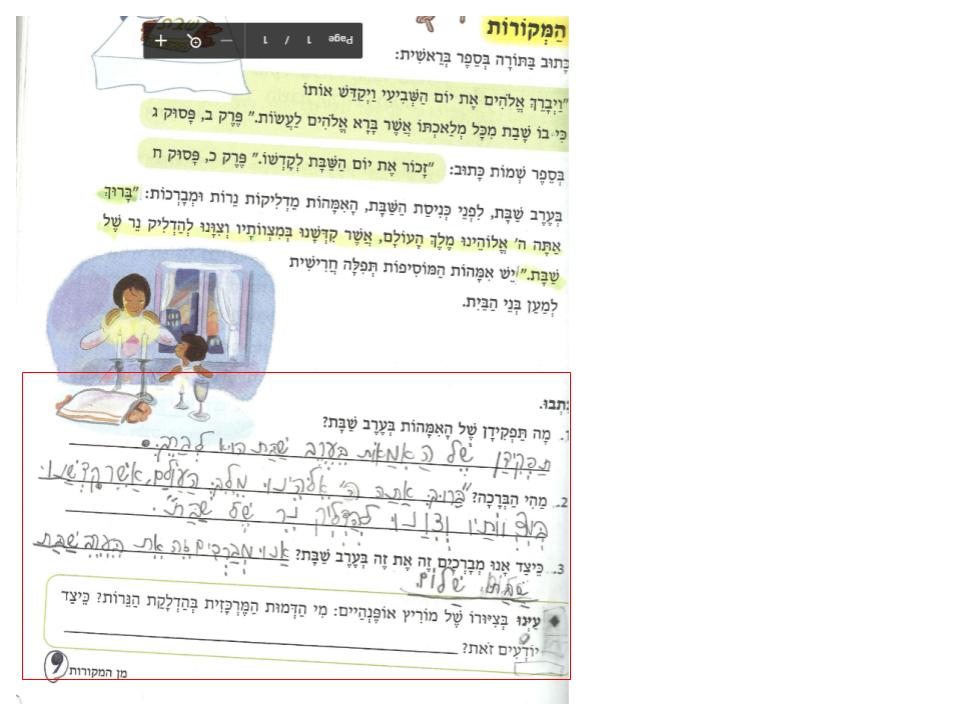 שבת
Page 1 / 1
הַמְּקוֹרוֹת
כָּתוּב בַּתּוֹרָה בְּסֵפֶר בְּרֵאשִׁית:
"וַיְבָרֶךְ אֱלֹהִים אֶת יוֹם הַשְּׁבִיעִי וַיְקַדֵּשׁ אוֹתוֹ
כִּי בוֹ שָׁבַת מִכָּל מְלַאכְתּוֹ אֲשֶׁר בָּרָא אֱלֹהִים לַעֲשׂוֹת." פֶּרֶק ב, פָּסוּק ג
בְּסֵפֶר שְׁמוֹת כָּתוּב: "זָכוֹר אֶת יוֹם הַשַּׁבָּת לְקָדְשׁוֹ." פֶּרֶק כ, פָּסוּק ח
בְּעֶרֶב שַׁבָּת, לִפְנֵי כְּנִיסַת הַשַּׁבָּת, הָאִמָּהוֹת מַדְלִיקוֹת נֵרוֹת וּמְבָרְכוֹת: "בָּרוּךְ
אַתָּה ה' אֱלוֹהֵינוּ מֶלֶךְ הָעוֹלָם, אֲשֶׁר קִדְּשָׁנוּ בְּמִצְווֹתָיו וְצִוָּנוּ לְהַדְלִיק נֵר שֶׁל
שַׁבָּת." יֵשׁ אִמָּהוֹת הַמּוֹסִיפוֹת תְּפִלָּה חֲרִישִׁית
לְמַעַן בְּנֵי הַבַּיִת.
כִּתְבוּ.
1. מַה תַּפְקִידָן שֶׁל הָאִמָּהוֹת בְּעֶרֶב שַׁבָּת?
תַפְקִידָן שֶׁל הַ בְּעֶרֶב שַׁבַּת הוּא
2. מַהִי הַבְּרָכָה? "בָּרוּךְ אַתָה ה' מֶלֶךְ הָעוֹלָם, אֲשֶׁר קִדְשָׁנוּ
וְצִוָנוּ לְהַדְלִיק נֵר שֶׁל שַׁבַּת".
3. כֵּיצַד אָנוּ מְבָרְכִים זֶה אֶת זֶה בְּעֶרֶב שַׁבָּת? אָנוּ מְבָרְכִים זֶה אֶת הֶעֶרֶב שַׁבַּת
שָׁלוֹם.
עַיְּנוּ בְּצִיּוּרוֹ שֶׁל מוֹרִיץ אוֹפֶּנְהַיִים: מִי הַדְּמוּת הַמֶּרְכָּזִית בְּהַדְלָקַת הַנֵּרוֹת? כֵּיצַד
יוֹדְעִים זֹאת?
מן המקורות 9